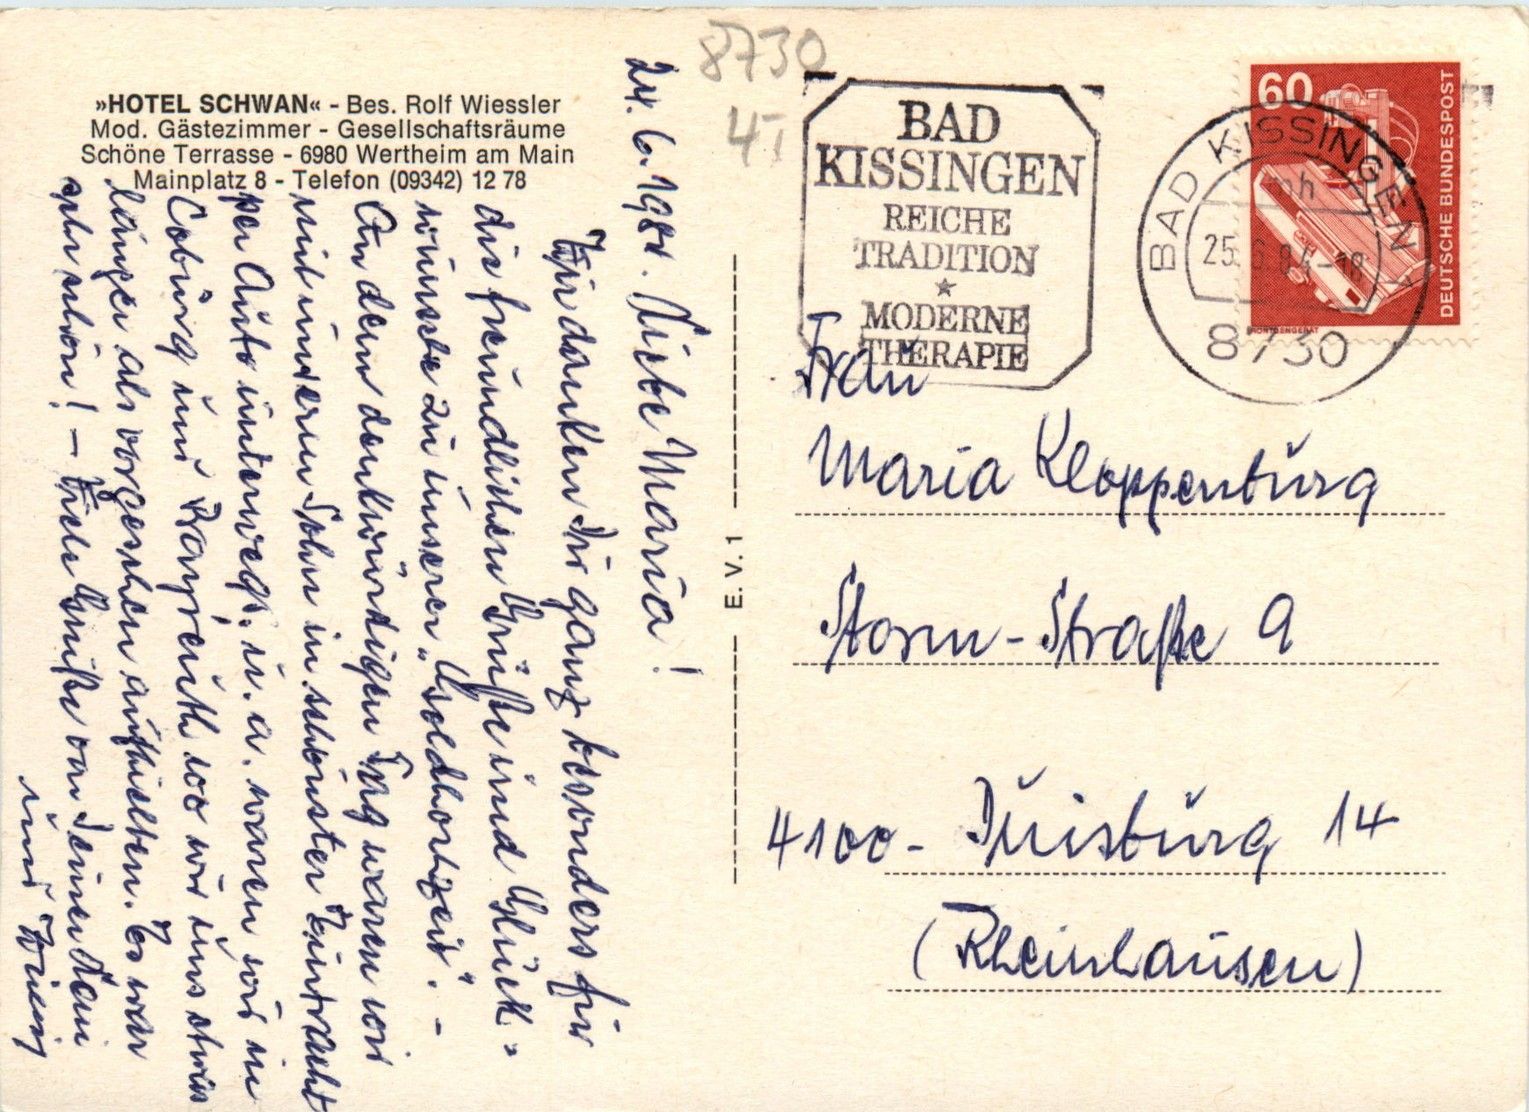 »HOTEL SCHWAN« - Bes. Rolf Wiessler
Mod. Gästezimmer - Gesellschaftsräume
Schöne Terrasse - 6980 Wertheim am Main
Mainplatz 8 - Telefon (09342) 12 78
24. 6. 1984. Liebe Maria!
Wir danken Dir ganz besonders für
die freundlichen Grüße und Glück-
wünsche zu unserer „Goldhochzeit". -
An dem denkwürdigen Tag waren wir
mit unserem Sohn in schönster Eintracht
per Auto unterwegs. u. a. waren wir in
Coburg und Bayreuth wo wir uns etwas
länger als vorgesehen aufhielten. Es war
sehr schön! - Viele Grüße von Deiner
und
E. V. 1
8730
BAD
KISSINGEN
REICHE
TRADITION
★
MODERNE
THERAPIE
BAD KISSINGEN 1
mh
25.6.84-18
8730
60
DEUTSCHE BUNDESPOST
RÖNTGENGERÄT
Frau
Maria Kloppenburg
Storm-Straße 9
4100- Duisburg 14
(Rheinhausen)